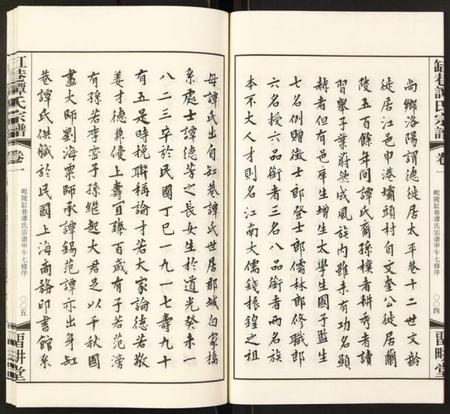 缸巷譚氏宗譜
卷一
毗陵缸巷譚氏宗譜甲午七修序
〇〇四
留畊堂
尚鄉洛陽謂德徙居太平巷十二世文齡
徙居江邑申港壩頭村自文奎公徙居蘭
陵五百餘年間譚氏裔孫樸者耕秀者讀
習舉子業蔚然成風族內雖未有功名顯
赫者但有邑庠生增生太學生國子監生
七名例贈徵士郎登仕郎儒林郎修職郎
六名授六品銜者三名八品銜者兩名族
本不大人才則名江南大儒錢振鍠之祖
母譚氏出自缸巷譚氏世居郡城白家橋
系處士譚德芳之長女生於道光癸未一
八二三卒於民國丁巳一九一七壽九十
有五是時挽聯稱論才若大家論德若敖
姜才德兼優上壽宜臻百歲有子若范滂
有孫若李密子孫繼起大君足以千秋國
畫大師劉海粟師承譚錫范譚亦出自缸
巷譚氏供職於民國上海商務印書館系
缸巷譚氏宗譜
卷一
毗陵缸巷譚氏宗譜甲午七修序
〇〇五
留畊堂